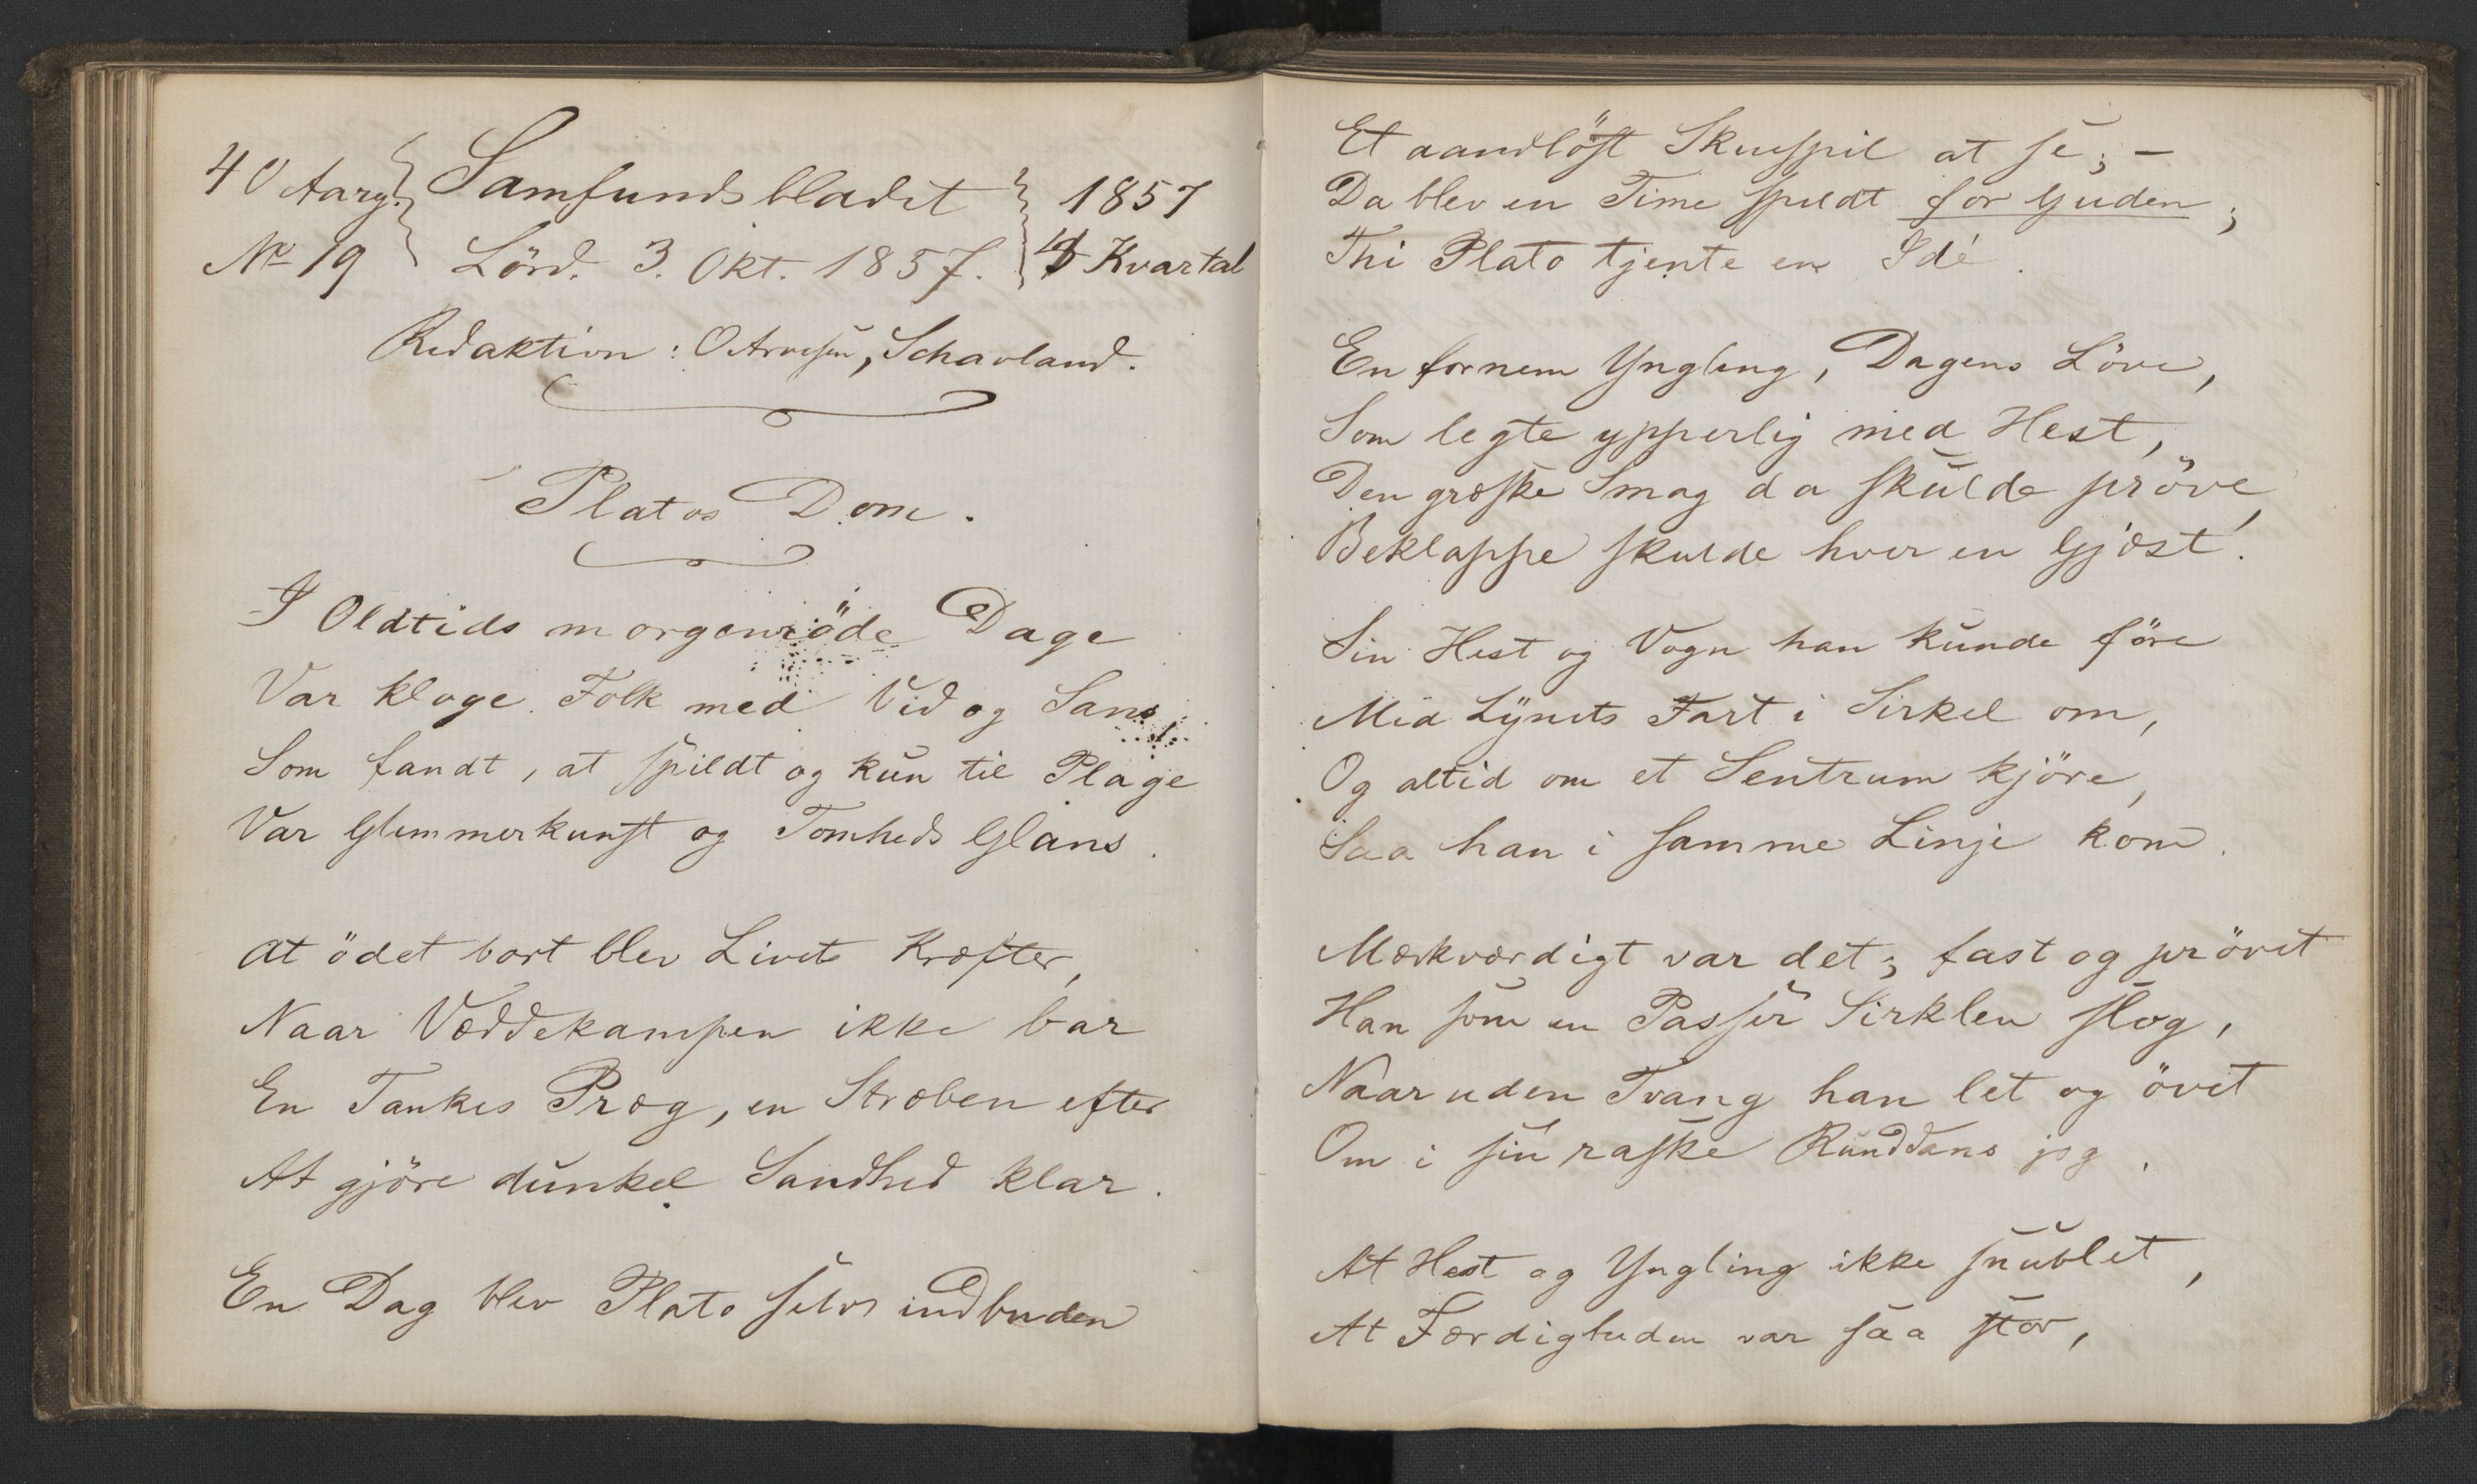 40 Aarg. Samfundsbladet 1857
No 19 Lörd. 3. Okt. 1857. 4 Kvartal
Redaktion: O Arvesen, Schavland.
Platos Dom.
I Oldtids morgenröde Dage
Var kloge Folk med Vid og Sans
Som fandt, at spildt og kun til Plage
Var Glimmerkunst og Tomheds Glans.
At ödet bort blev Livets Kræfter,
Naar Væddekampen ikke bar
En Tankes Præg, en Stræben efter
At gjöre dunkel Sandhed klar.
En Dag blev Plato selv indbuden
Et aandlöst Skuespil at se; –
Da blev en Time spildt for Guden;
Thi Plato tjente en Idé.
En fornem Yngling, Dagens Löve,
Som legte ypperlig med Hest,
Den græske Smag da skulde pröve,
Beklappe skulde hver en Gjæst.
Sin Hest og Vogn han kunde före
Med Lynets Fart i Sirkel om,
Og altid om et Sentrum kjöre,
Saa han i samme Linje kom.
Mærkværdigt var det; fast og prövet
Han som en Passer Sirklen slog,
Naar uden Tvang han let og övet
Om i sin raske Runddans jog.
At Hest og Yngling ikke snublet,
At Færdigheden var saa stor,